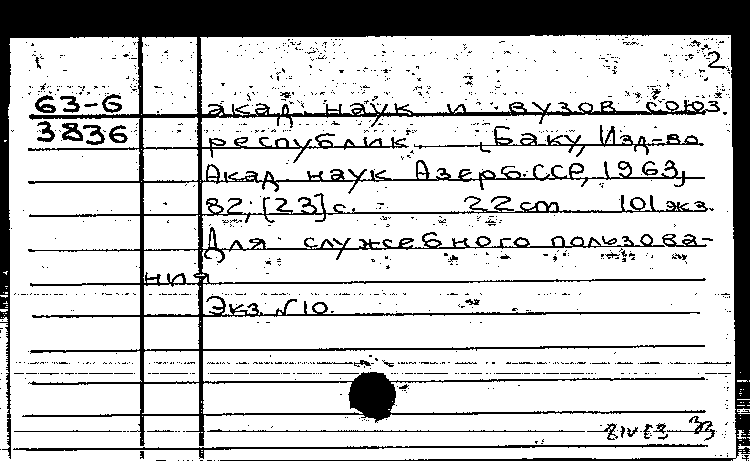 2
63-6
3836
акад. наук и вузов союз.
республик. [Баку, Изд-во
Акад. наук Азерб.ССР, 1963,
82; [23] с. 22 cm 101 экз.
Для служебного пользова-
ния
Экз. №10.